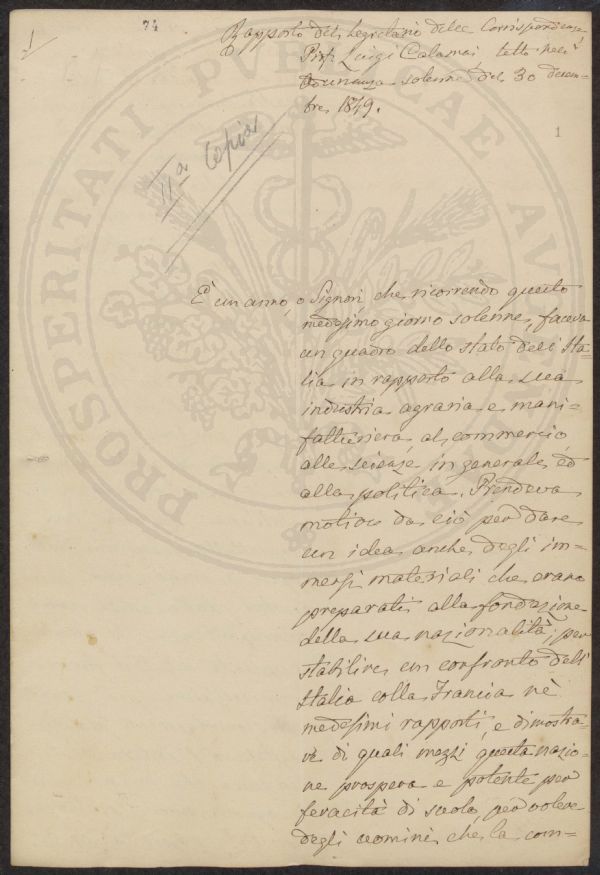 1
74
Rapporto del Segretario delle Corrispondenze
Prof. Luigi Calamai, letto nell'
Adunanza solenne del 30 decem=
bre 1849.
1
IIa Copia
PROSPERITATI PVBLICAE AV
È un anno, o Signori che ricorrendo questo
medesimo giorno solenne, faceva
un quadro dello stato dell'Ita=
lia in rapporto alla sua
industria agraria e mani=
fatturiera, al commercio,
alle scienze in generale, ed
alla politica. Prendeva
motivo da ciò per dare
un idea anche degli im=
mensi materiali che erano
preparati alla fondazione
della sua nazionalità; per
stabilire un confronto dell'
Italia colla Francia nè
medesimi rapporti, e dimostra=
re di quali mezzi questa nazio=
ne prospera e potente per
feracità di suolo, per volere
degli uomini che la com=